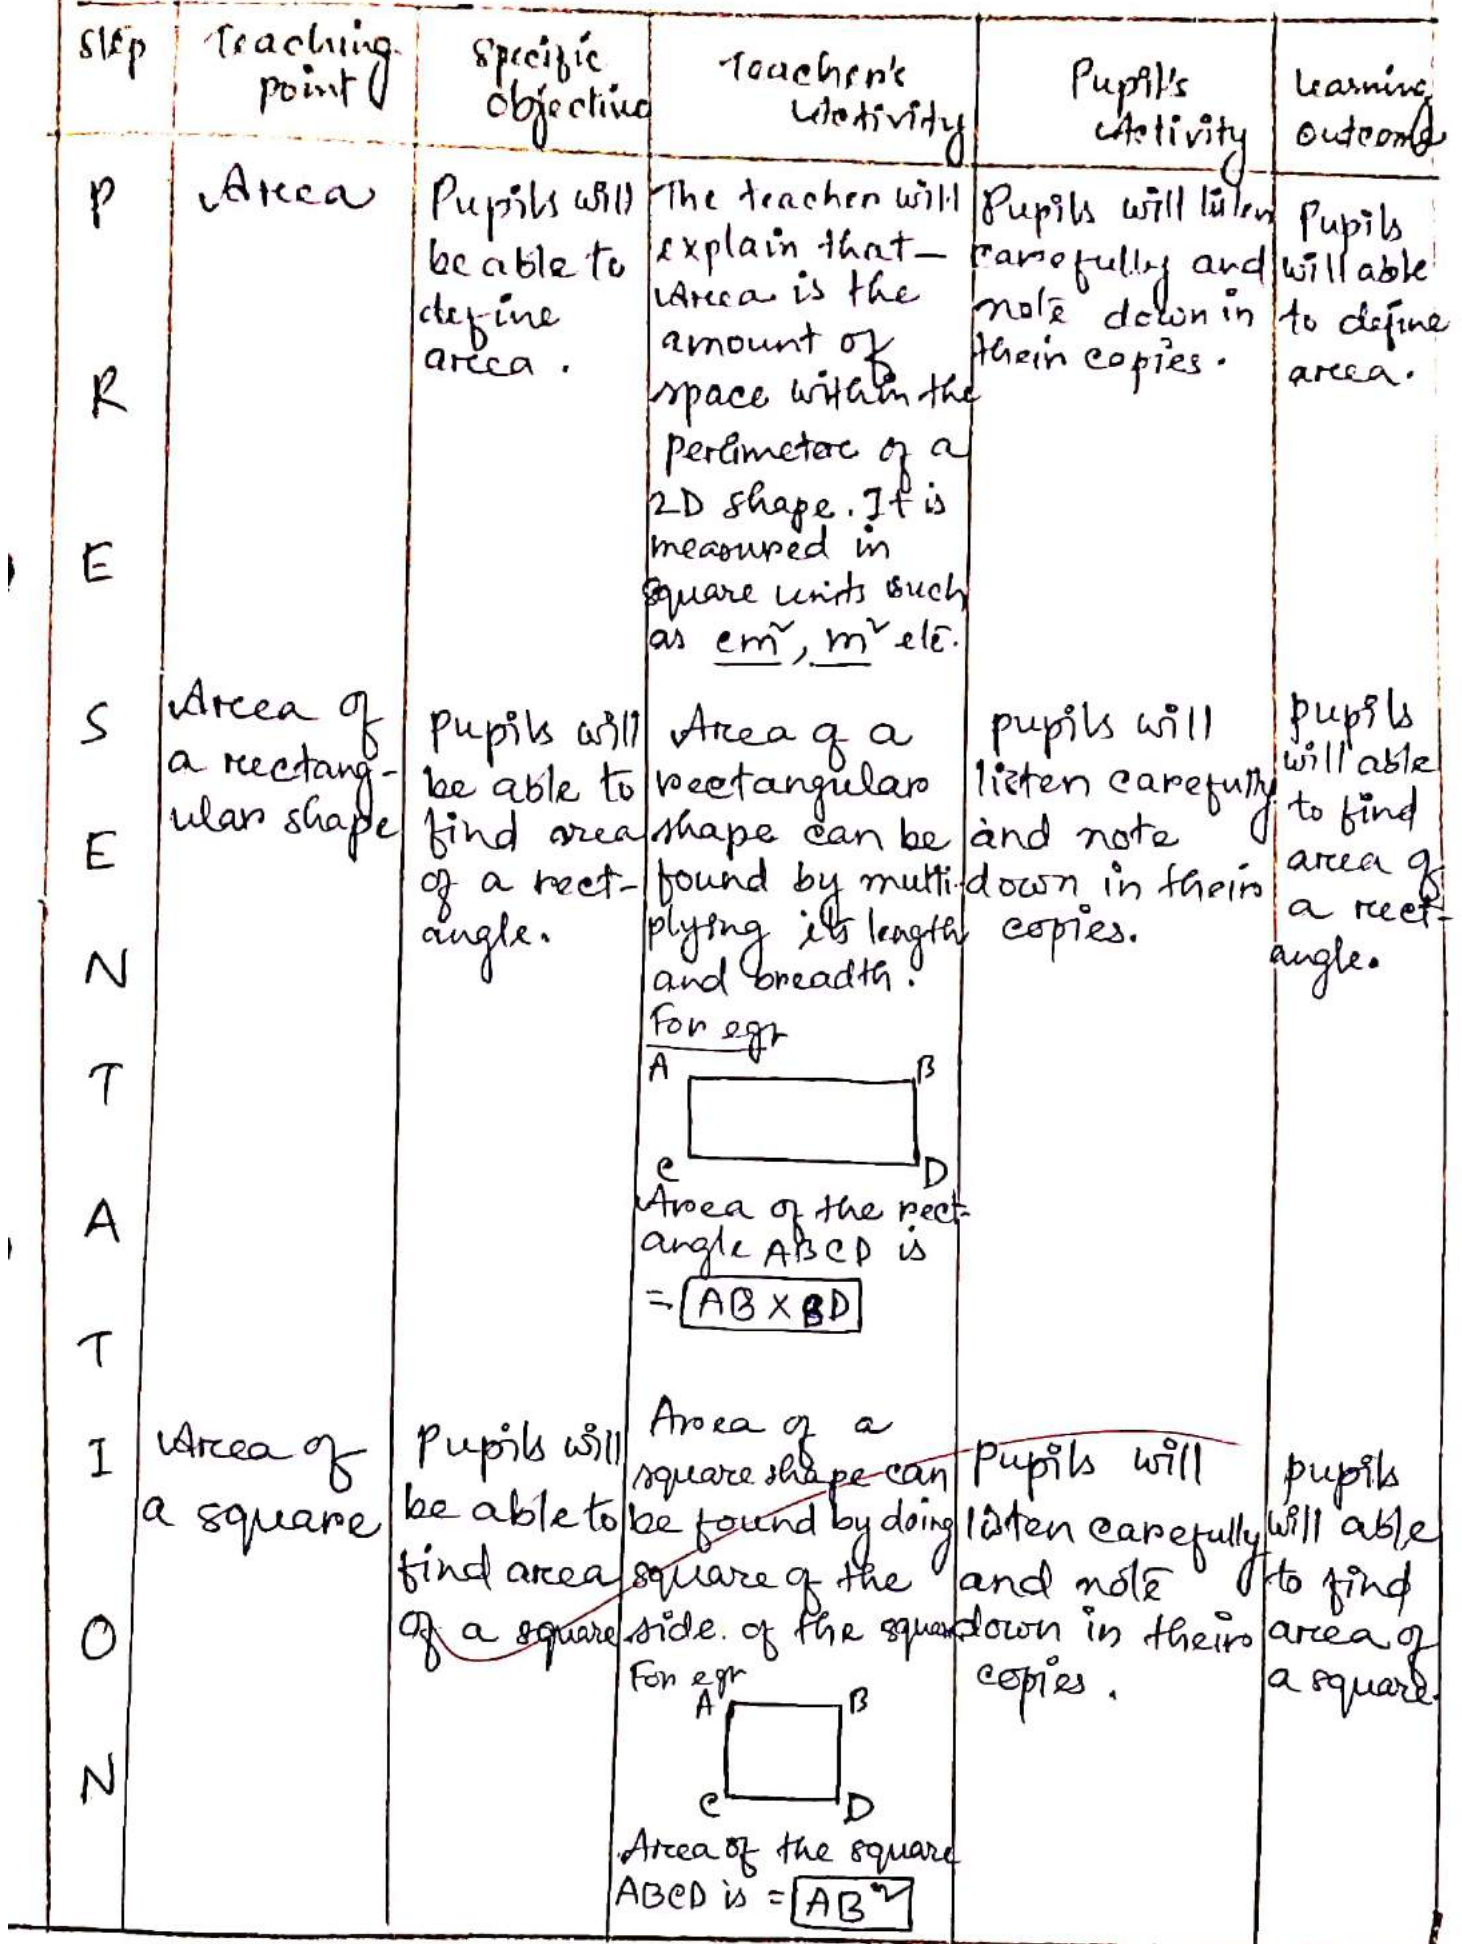 Step
Teaching
point
Specific
objective
Teacher's
Activity
Pupil's
Activity
Learning
outcome
P
R
E
S
E
N
T
A
T
I
O
N
Area
Pupils will
be able to
define
area.
The teacher will
explain that–
Area is the
amount of
space within the
perimeter of a
2D shape. It is
measured in
square units such
as cm², m² etc.
Pupils will listen
carefully and
note down in
their copies.
Pupils
will able
to define
area.
Area of
a rectang-
ular shape
Pupils will
be able to
find area
of a rect-
angle.
Area of a
rectangular
shape can be
found by multi-
plying its length
and breadth.
For eg:
A B
C D
Area of the rect-
angle ABCD is
= AB X BD
pupils will
listen carefully
and note
down in their
copies.
pupils
will able
to find
area of
a rect-
angle.
Area of
a square
Pupils will
be able to
find area
of a square
Area of a
square shape can
be found by doing
square of the
side. of the square
For eg:
A B
C D
Area of the square
ABCD is = AB²
Pupils will
listen carefully
and note
down in their
copies.
pupils
will able
to find
area of
a square.